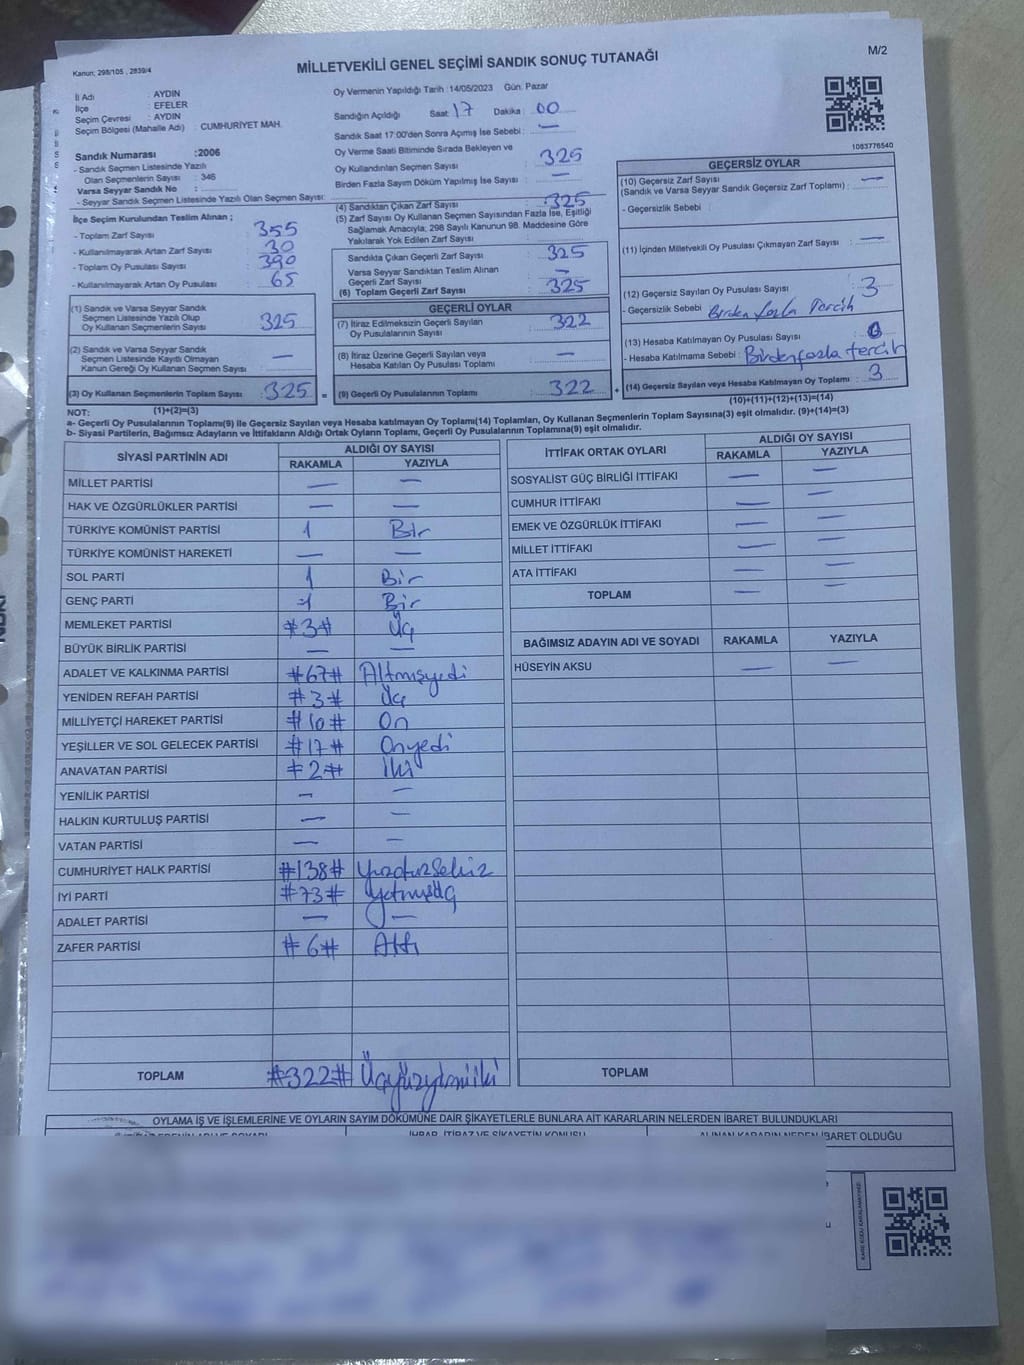 Kanun; 298/105 , 2839/4
MİLLETVEKİLİ GENEL SEÇİMİ SANDIK SONUÇ TUTANAĞI
M/2
İl Adı : AYDIN
İlçe : EFELER
Seçim Çevresi : AYDIN
Seçim Bölgesi (Mahalle Adı) : CUMHURİYET MAH.
Sandık Numarası :2006
- Sandık Seçmen Listesinde Yazılı
Olan Seçmenlerin Sayısı : 346
Varsa Seyyar Sandık No :
- Seyyar Sandık Seçmen Listesinde Yazılı Olan Seçmen Sayısı:
Oy Vermenin Yapıldığı Tarih :14/05/2023 Gün: Pazar
Sandığın Açıldığı Saat: 17 Dakika: 00
Sandık Saat 17:00'den Sonra Açımış İse Sebebi : —
Oy Verme Saati Bitiminde Sırada Bekleyen ve
Oy Kullandırılan Seçmen Sayısı : 325
Birden Fazla Sayım Döküm Yapılmış İse Sayısı : —
1083776540
İlçe Seçim Kurulundan Teslim Alınan ;
- Toplam Zarf Sayısı : 355
- Kullanılmayarak Artan Zarf Sayısı : 30
- Toplam Oy Pusulası Sayısı : 390
- Kullanılmayarak Artan Oy Pusulası : 65
(1) Sandık ve Varsa Seyyar Sandık
Seçmen Listesinde Yazılı Olup
Oy Kullanan Seçmenlerin Sayısı : 325
(2) Sandık ve Varsa Seyyar Sandık
Seçmen Listesinde Kayıtlı Olmayan
Kanun Gereği Oy Kullanan Seçmen Sayısı : —
(3) Oy Kullanan Seçmenlerin Toplam Sayısı : 325
(1)+(2)=(3)
(4) Sandıktan Çıkan Zarf Sayısı : 325
(5) Zarf Sayısı Oy Kullanan Seçmen Sayısından Fazla İse, Eşitliği
Sağlamak Amacıyla; 298 Sayılı Kanunun 98. Maddesine Göre
Yakılarak Yok Edilen Zarf Sayısı :
Sandıkta Çıkan Geçerli Zarf Sayısı : 325
Varsa Seyyar Sandıktan Teslim Alınan
Geçerli Zarf Sayısı : —
(6) Toplam Geçerli Zarf Sayısı : 325
GEÇERLİ OYLAR
(7) İtiraz Edilmeksizin Geçerli Sayılan
Oy Pusulalarının Sayısı : 322
(8) İtiraz Üzerine Geçerli Sayılan veya
Hesaba Katılan Oy Pusulası Toplamı : —
= (9) Geçerli Oy Pusulalarının Toplamı : 322 +
GEÇERSİZ OYLAR
(10) Geçersiz Zarf Sayısı
(Sandık ve Varsa Seyyar Sandık Geçersiz Zarf Toplamı) : —
- Geçersizlik Sebebi :
(11) İçinden Milletvekili Oy Pusulası Çıkmayan Zarf Sayısı : —
(12) Geçersiz Sayılan Oy Pusulası Sayısı : 3
- Geçersizlik Sebebi : Birden fazla tercih
(13) Hesaba Katılmayan Oy Pusulası Sayısı :
- Hesaba Katılmama Sebebi : Birden fazla tercih
(14) Geçersiz Sayılan veya Hesaba Katılmayan Oy Toplamı : 3
(10)+(11)+(12)+(13)=(14)
NOT:
a- Geçerli Oy Pusulasının Toplamı(9) ile Geçersiz Sayılan veya Hesaba katılmayan Oy Toplamı(14) Toplamları, Oy Kullanan Seçmenlerin Toplam Sayısına(3) eşit olmalıdır. (9)+(14)=(3)
b- Siyasi Partilerin, Bağımsız Adayların ve İttifakların Aldığı Ortak Oyların Toplamı, Geçerli Oy Pusulalarının Toplamına(9) eşit olmalıdır.
SİYASİ PARTİNİN ADI ALDIĞI OY SAYISI
RAKAMLA YAZIYLA
MİLLET PARTİSİ — —
HAK VE ÖZGÜRLÜKLER PARTİSİ — —
TÜRKİYE KOMÜNİST PARTİSİ 1 Bir
TÜRKİYE KOMÜNİST HAREKETİ — —
SOL PARTİ 1 Bir
GENÇ PARTİ 1 Bir
MEMLEKET PARTİSİ #3# Üç
BÜYÜK BİRLİK PARTİSİ — —
ADALET VE KALKINMA PARTİSİ #67# Altmışyedi
YENİDEN REFAH PARTİSİ #3# Üç
MİLLİYETÇİ HAREKET PARTİSİ #10# On
YEŞİLLER VE SOL GELECEK PARTİSİ #17# Onyedi
ANAVATAN PARTİSİ #2# İki
YENİLİK PARTİSİ — —
HALKIN KURTULUŞ PARTİSİ — —
VATAN PARTİSİ — —
CUMHURİYET HALK PARTİSİ #138# Yüzotuzsekiz
İYİ PARTİ #73# Yetmişüç
ADALET PARTİSİ — —
ZAFER PARTİSİ #6# Altı
TOPLAM #322# Üçyüzyirmiiki
İTTİFAK ORTAK OYLARI ALDIĞI OY SAYISI
RAKAMLA YAZIYLA
SOSYALİST GÜÇ BİRLİĞİ İTTİFAKI — —
CUMHUR İTTİFAKI — —
EMEK VE ÖZGÜRLÜK İTTİFAKI — —
MİLLET İTTİFAKI — —
ATA İTTİFAKI — —
TOPLAM — —
BAĞIMSIZ ADAYIN ADI VE SOYADI RAKAMLA YAZIYLA
HÜSEYİN AKSU — —
TOPLAM
OYLAMA İŞ VE İŞLEMLERİNE VE OYLARIN SAYIM DÖKÜMÜNE DAİR ŞİKAYETLERLE BUNLARA AİT KARARLARIN NELERDEN İBARET BULUNDUKLARI
İHBAR, İTİRAZ VE ŞİKAYETİN KONUSU ALINAN KARARIN NEDEN İBARET OLDUĞU
KARE KODU KARALAMAYINIZ.